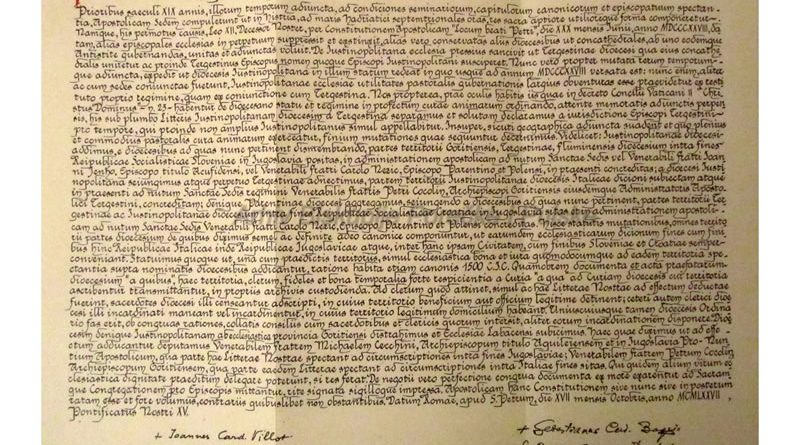 Prioribus saeculi XIX annis, illorum temporum adiuncta, ad condiciones seminariorum, capitulorum canonicorum et episcopatuum spectan-
tia, Apostolicam Sedem compulerunt ut in Histria, ad maris Hadriatici septentrionales oras, res sacra aptiore utilioreque forma componeretur.
Namque, his permotus causis, Leo XII, Decessor Noster, per Constitutionem Apostolicam "Locum beati Petri", die XXX mensis Iunii, anno MDCCCXXVIII, da-
tam, alias episcopales ecclesias in perpetuum suppressit et restinxit, alias vero conservatas aliis dioecesibus ut concathedrales, ab uno eodemque
Antistite gubernandas, unitas et adiunctas voluit. De Iustinopolitana ecclesia pressus sancivit ut Tergestinae dioecesi qua eius concathe-
dralis uniretur ac proinde Tergestinus Episcopus nomen quoque Episcopi Iustinopolitani susciperet. Nunc vero propter mutata rerum temporum-
que adiuncta, expedit ut dioecesis Iustinopolitana in illum statum redeat in quo usque ad annum MDCCCXXVIII versata est: nunc enim, aliter
ac cum sedes coniunctae fuerunt, Iustinopolitanae ecclesiae utilitati pastoralis gubernationis largius obventurae esse praevidetur ex resti-
tuto proprio regimine, quam ex coniunctione cum Tergestina. Nos propterea, prae oculis habitis iis quae in decreto Concilii Vaticani II "Chri-
stus Dominus" n. 23 habentur de dioecesano statu et regimine in profectum curae animarum ordinando, attente memoratis adiunctis perpen-
sis, his sub plumbo Litteris Iustinopolitanam dioecesim a Tergestina separamus et solutam declaramus a iurisdictione Episcopi Tergestini
pro tempore, qui proinde non amplius Iustinopolitanus simul appellabitur. Insuper, sicut geographica adiuncta suadent et quo plenius
et commodius pastoralis cura animarum exerceatur, finium mutationes quae sequuntur decernimus. Videlicet: Iustinopolitanae dioecesi
addimus, e dioecesibus ad quas nunc pertinent dismembrando, partes territorii Goritiensis, Tergestinae, Fluminensis dioecesium intra fines
Reipublicae Socialisticae Sloveniae in Iugoslavia positas, in administrationem apostolicam ad nutum Sanctae Sedis vel Venerabili Fratri Ioan-
ni Jenko, Episcopo titulo Acufidensi, vel Venerabili Fratri Carolo Nerić, Episcopo Parentino et Polensi, in praesenti concreditas; a dioecesi Iusti-
nopolitana seiungimus atque perpetuo Tergestinae adicimus, partem territorii Iustinopolitanae dioecesis Italicae dicioni subiectam atque
in praesenti ad nutum Sanctae Sedis regimini Venerabilis Fratris Petri Cocolin, Archiepiscopi Goritiensis eiusdemque Administratoris Aposto-
lici Tergestini, concreditam; denique, Parentinae dioecesi aggregamus, seiungendo a dioecesibus ad quas nunc pertinent, partes territorii Ter-
gestinae ac Iustinopolitanae dioecesium in Republica Socialistica Croatiae in Iugoslavia positas, in administrationem apostoli-
cam ad nutum Sanctae Sedis Venerabili Fratri Carolo Nerić, Episcopo Parentino et Polensi concreditas. Hisce statutis mutationibus, omnes terri-
torii partes dioecesium de quibus diximus semel ac definite adeo canonice componuntur, ut earundem ecclesiasticarum dicionum fines cum fini-
bus hinc Reipublicae Italicae inde Reipublicae Iugoslavicae atque, inter hanc ipsam Civitatem, cum finibus Sloveniae et Croatiae semper
conveniant. Statuimus quoque ut, una cum praedictis territoriis, simul ecclesiastica bona et iura quomodocumque ad eadem territoria spe-
ctantia supra nominatis dioecesibus addicantur, ratione habita etiam canonis 1500 C.I.C. Quamobrem documenta et acta praefatarum
dioecesium a quibus, haec territoria, clerum, fideles et bona temporalia forte respicientia a Curia "a qua" ad Curiam dioecesis cui territoria
ascribentur transmittantur, in propriis archivis custodienda. Ad clerum quod attinet, simul ac hae Litterae Nostrae ad effectum deductae
fuerint, sacerdotes dioecesi illi censeantur adscripti, in cuius territorio beneficium aut officium legitime detinent; ceteri autem clerici dioe-
cesi illi incardinati maneant vel incardinentur, in cuius territorio legitimum domicilium habeant. Uniuscuiusque tamen dioecesis Ordina-
rio fas erit, ob congruas rationes, collatis consiliis cum sacerdotibus et clericis quorum interest, aliter eorum incardinationem disponere. Dioe-
cesim denique Iustinopolitanam ab ecclesiastica provincia Goritiensi distrahimus et Ecclesiae Labacensi subicimus. Haec quae diximus ut ad effe-
ctum adducantur deputamus Venerabilem Fratrem Michaelem Cecchini, Archiepiscopum titulo Aquileiensem et in Iugoslavia Pro-Nun-
tium Apostolicum, qua parte hae Litterae Nostrae spectant ad circumscriptiones intra fines Iugoslaviae; Venerabilem Fratrem Petrum Cocolin,
Archiepiscopum Goritiensem, qua parte eaedem Litterae spectant ad circumscriptiones intra Italiae fines sitas. Qui quidem alium virum ec-
clesiastica dignitate praeditum delegare poterunt, si res ferat. De negotii vero perfectione congrua documenta ex more exarentur ad Sacram-
que Congregationem pro Episcopis mittantur, rite signata sigilloque impressa. Apostolicam hanc Constitutionem sive nunc sive in posterum
ratam esse et fore volumus, contrariis quibuslibet non obstantibus. Datum Romae, apud S. Petrum, die XVII mensis Octobris, anno MCMLXXVII,
Pontificatus Nostri XV.
+ Ioannes Card. Villot
+ Sebastianus Card. Baggio